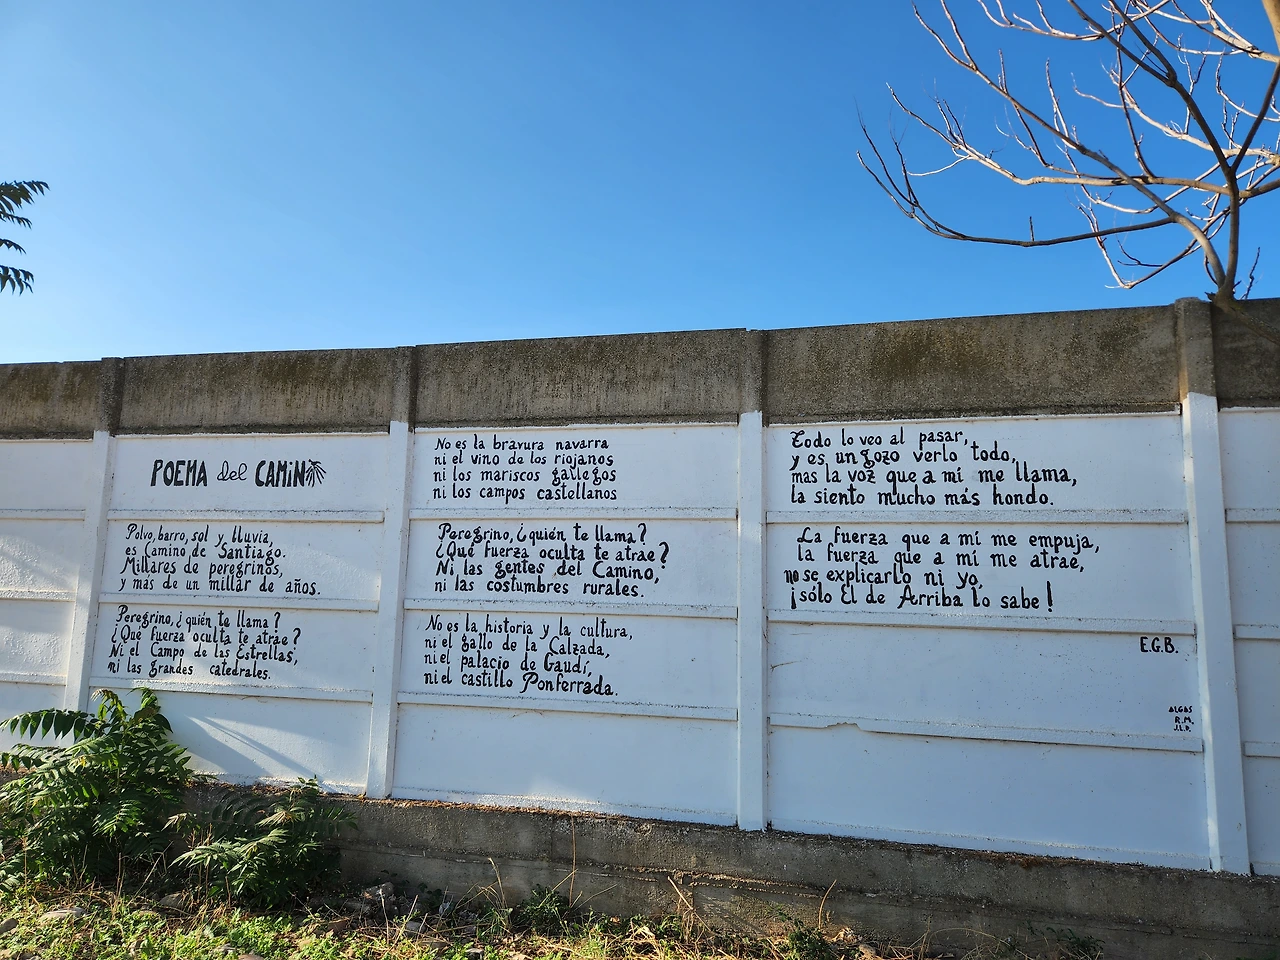 POEMA del CAMINO
Polvo, barro, sol y lluvia,
es Camino de Santiago.
Millares de peregrinos,
y más de un millar de años.
Peregrino, ¿quién te llama?
¿Qué fuerza oculta te atrae?
Ni el Campo de las Estrellas,
ni las grandes catedrales.
No es la bravura navarra
ni el vino de los riojanos
ni los mariscos gallegos
ni los campos castellanos
Peregrino, ¿quién te llama?
¿Qué fuerza oculta te atrae?
Ni las gentes del Camino,
ni las costumbres rurales.
No es la historia y la cultura,
ni el gallo de la Calzada,
ni el palacio de Gaudí,
ni el castillo Ponferrada.
Todo lo veo al pasar,
y es un gozo verlo todo,
mas la voz que a mí me llama,
la siento mucho más hondo.
La fuerza que a mí me empuja,
la fuerza que a mí me atrae,
no se explicarlo ni yo,
¡sólo El de Arriba lo sabe!
E.G.B.
ALGAS
R.M.
J.L.D.